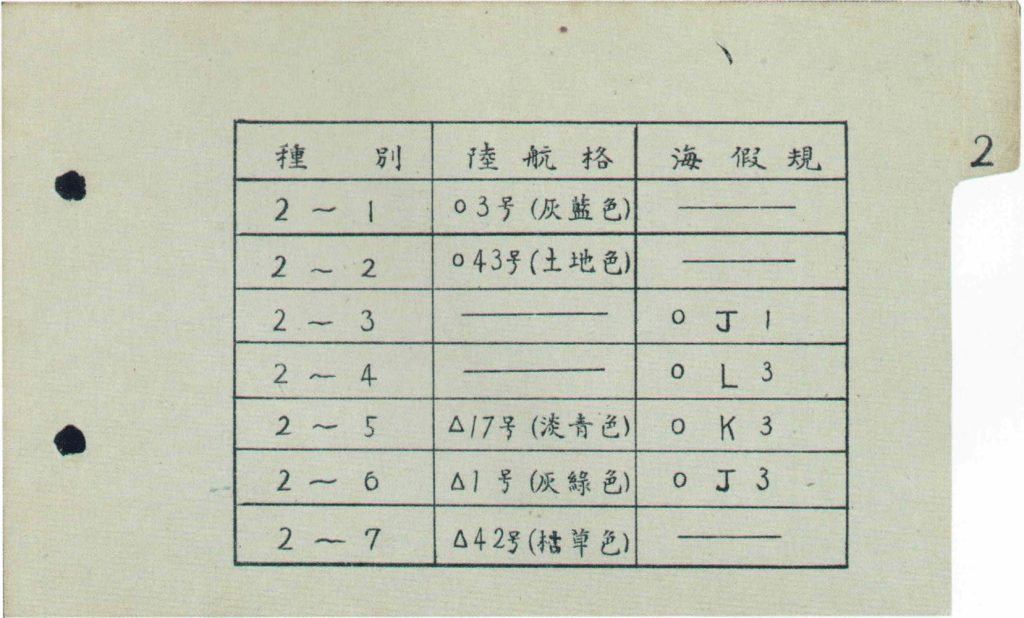 2
種別 陸航格 海假規
2～1 ○3号(灰藍色) ———
2～2 ○43号(土地色) ———
2～3 ——— ○ J1
2～4 ——— ○ L3
2～5 △17号(淡青色) ○ K3
2～6 △1号(灰綠色) ○ J3
2～7 △42号(枯草色) ———